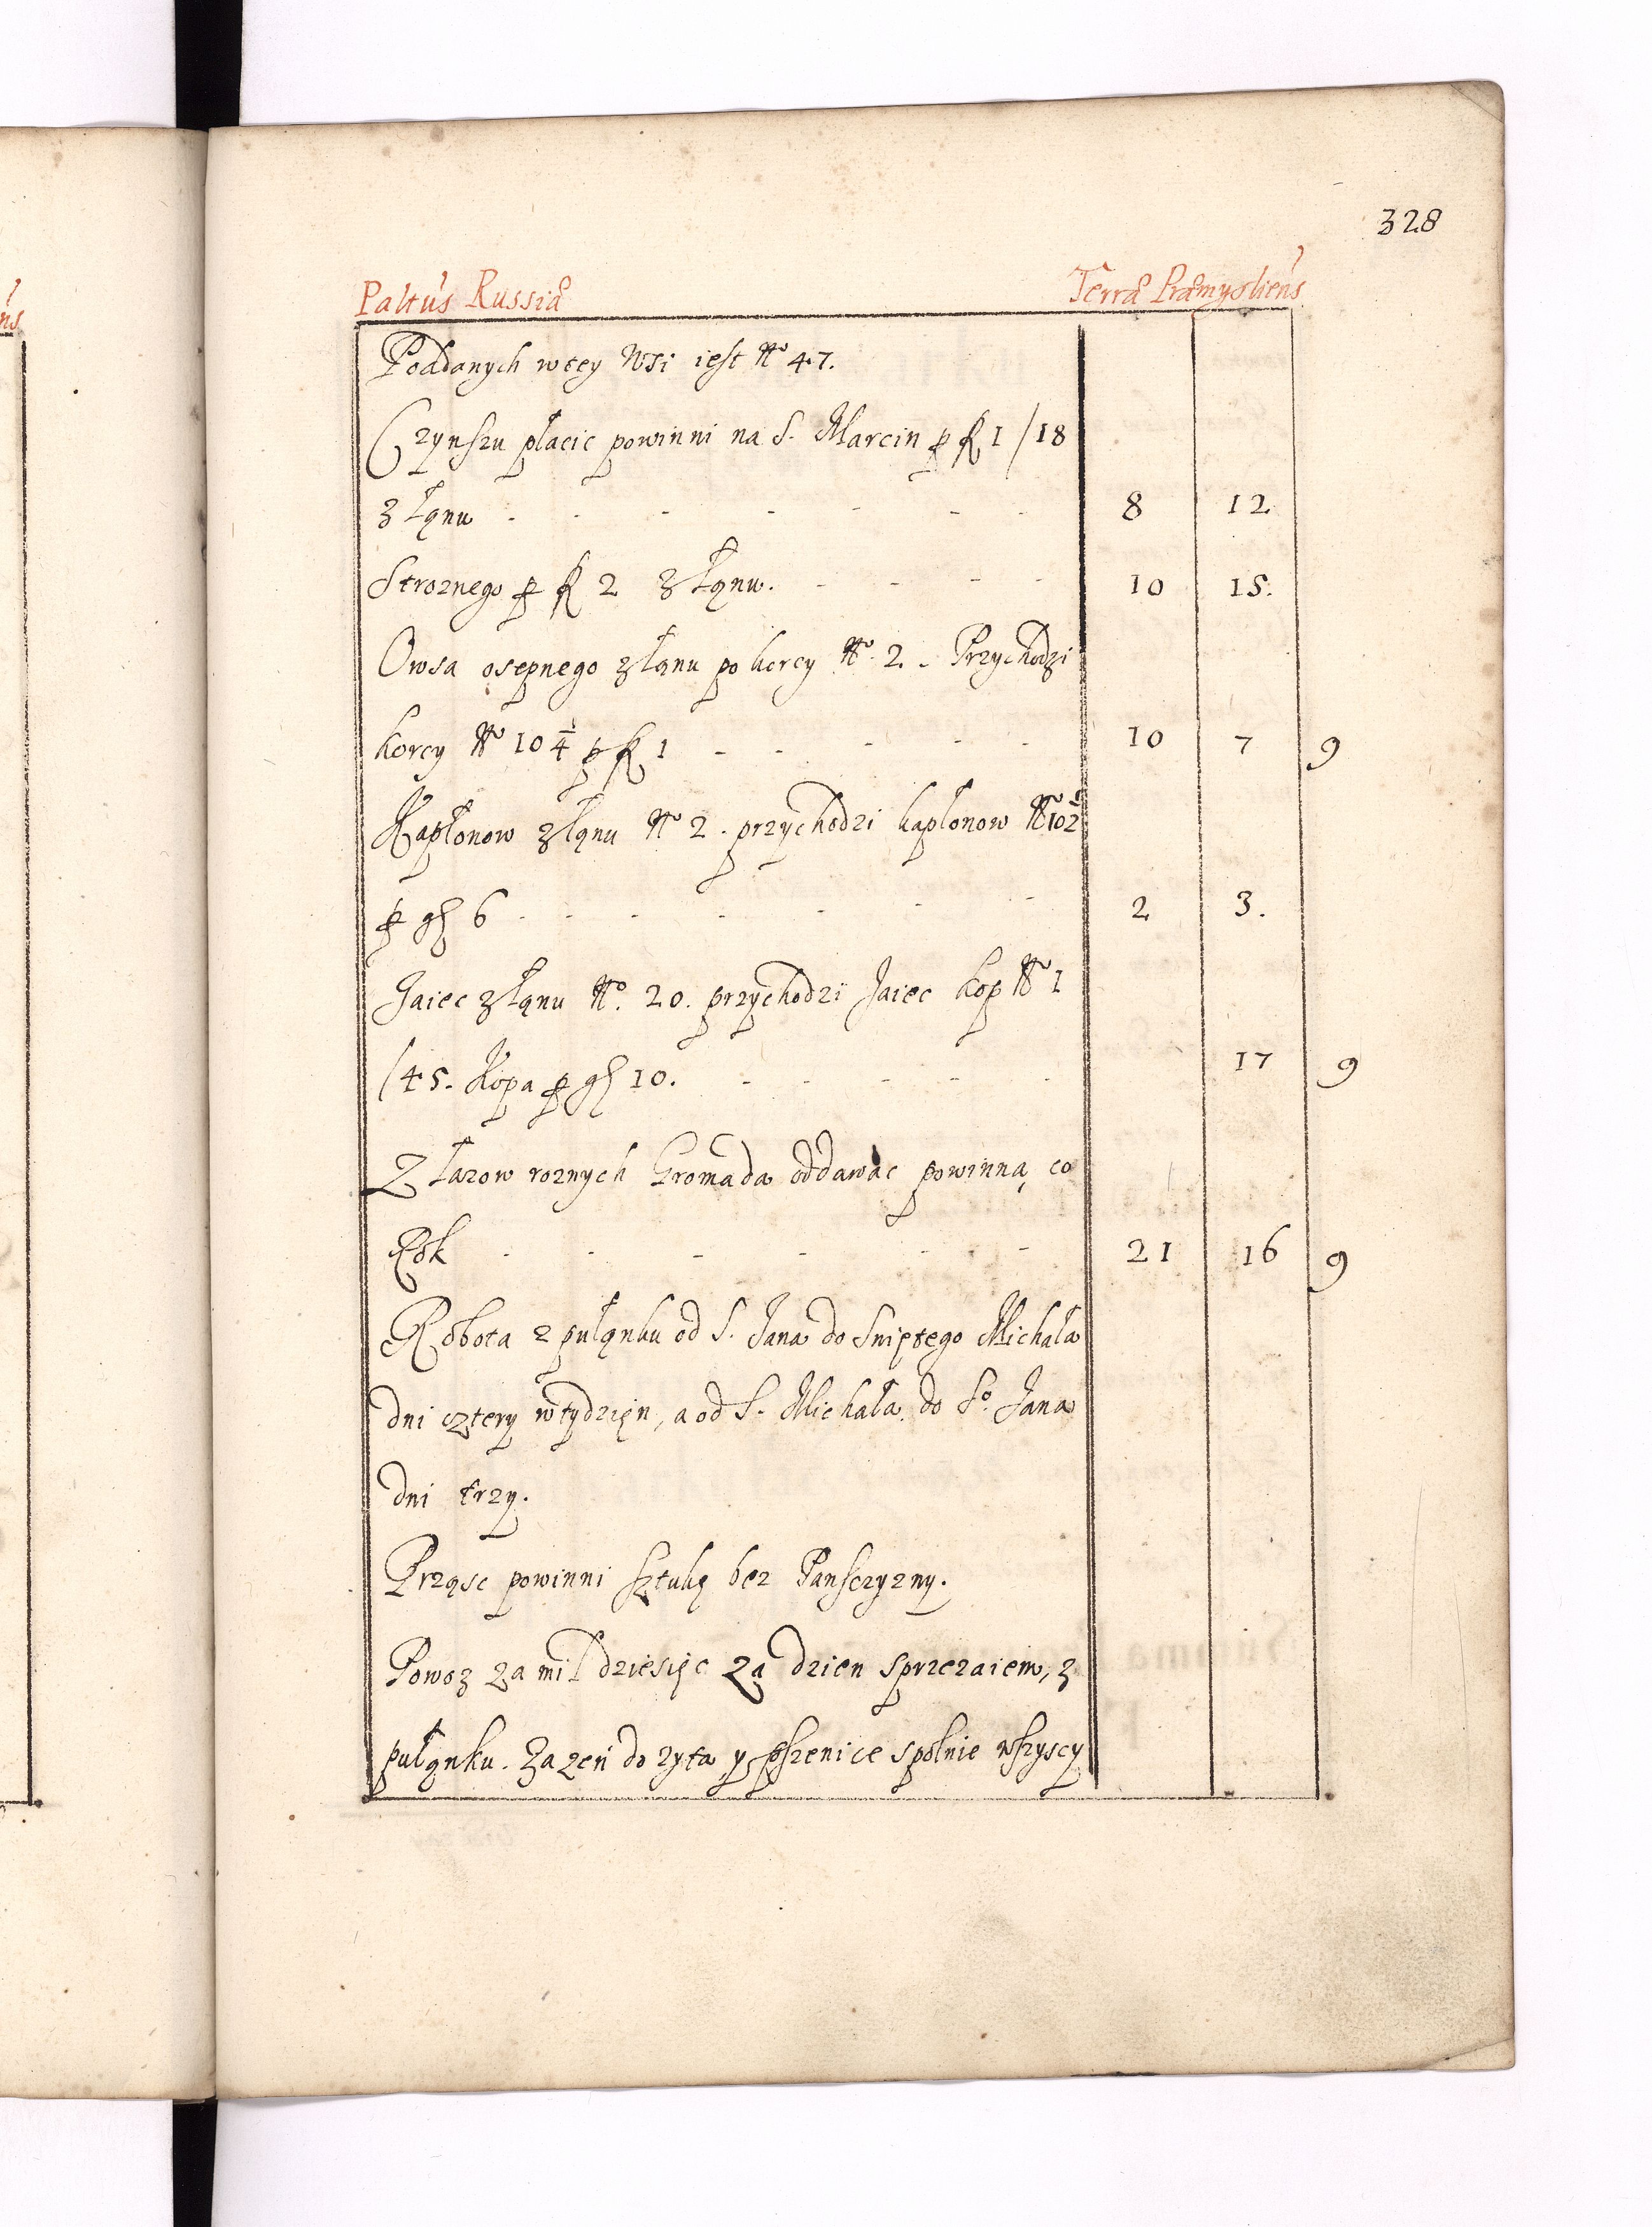 328
Paltus Russiæ Terræ Præmysliens
Poddanych wtey Wsi iest No 47.
Czynszu płacic powinni na S. Marcin p fl 1/18
z Łąnu - - - - - - 8 12
Stroznego p fl 2 z Łąnu. - - - - 10 15.
Owsa osepnego z Łąnu po korcy No 2. Przychodzi
korcy No 10 1/4 p fl 1 - - - - - 10 7 9
Kapłonow z Łąnu No 2. przychodzi kapłonow No 10 1/2
p gs 6 - - - - - - 2 3.
Jaiec z Łąnu No. 20. przychodzi Jaiec kop No 1
/45. Kopa p gs 10. - - - - - 17 9
Z Łazow roznych Gromada oddawac powinna, co
Rok - - - - - - 21 16 9
Robota z pułąnku od S. Jana do Swiętego Michała
dni cztery wtydzięn, a od S. Michała do So. Jana
dni trzy.
Prząsc powinni sztukę bez Panszczyzny.
Powoz za mil dziesięc zą dzien sprzezaiem, z
pułąnku. Zazen do zyta y pszenice spolnie wszyscy
ns